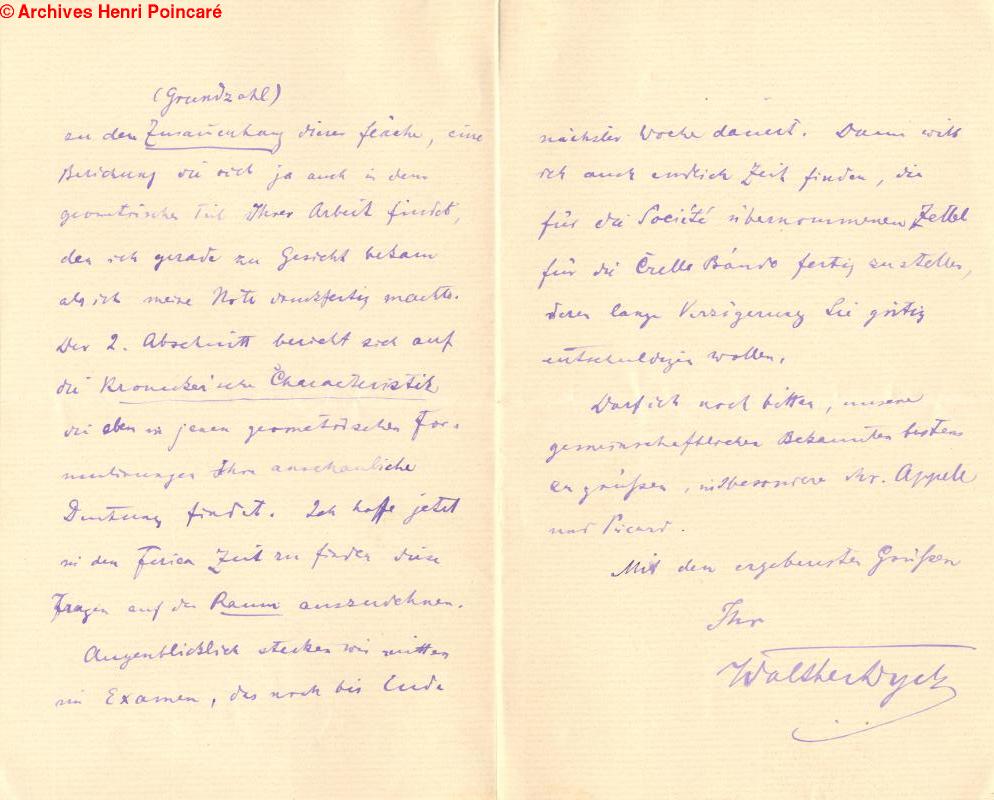 © Archives Henri Poincaré
(Grundzahl)
zu dem Zusammenhang dieser Fläche, eine
Beziehung die sich ja auch in dem
geometrischen Teil Ihrer Arbeit findet,
den ich gerade zu Gesicht bekam
als ich meine Note druckfertig machte.
Der 2. Abschnitt bezieht sich auf
die Kronecker'sche Characteristik
die eben in jenen geometrischen For-
mulirungen Ihre anschauliche
Deutung findet. Ich hoffe jetzt
in den Ferien Zeit zu finden diese
Fragen auf den Raum auszudehnen.
Augenblicklich stecken wir mitten
im Examen, das noch bis Ende
nächster Woche dauert. Dann will
ich auch endlich Zeit finden, die
für die Société übernommenen Zettel
für die Crelle Bände fertig zu stellen,
deren lange Verzögerung Sie gütig
entschuldigen wollen.
Darf ich noch bitten, unsere
gemeinschaftlichen Bekannten bestens
zu grüßen, insbesondere Hr. Appell
und Picard.
Mit den ergebensten Grüßen
Ihr
Walther Dyck